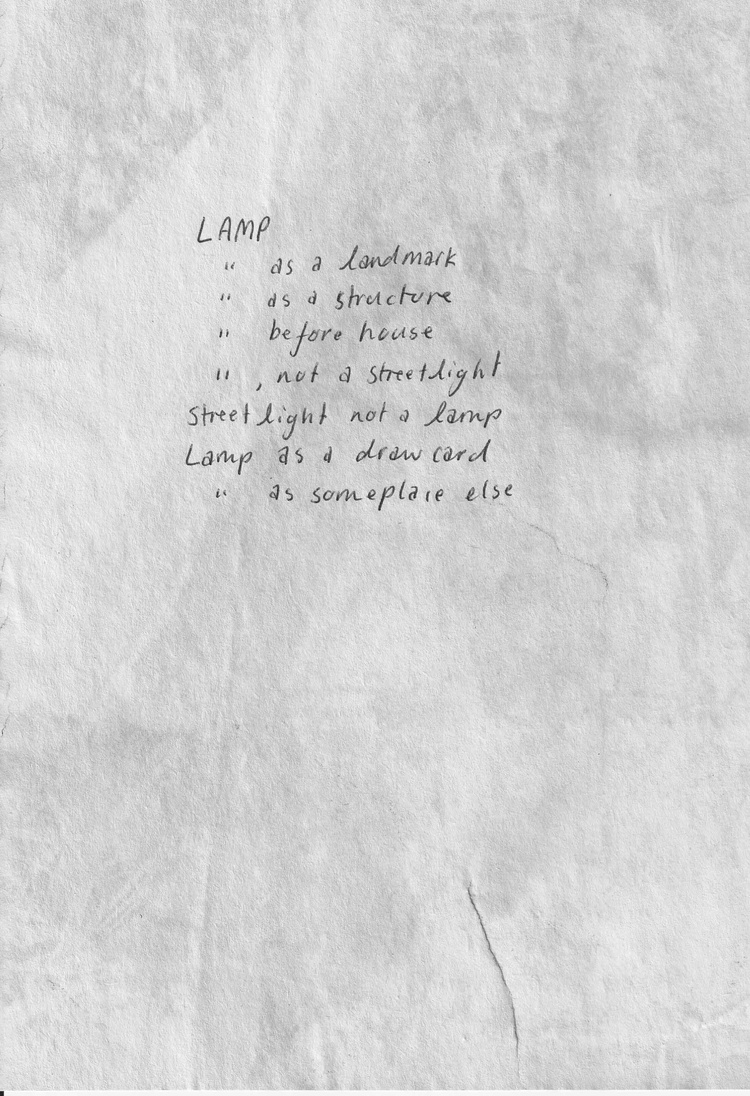 LAMP
" as a landmark
" as a structure
" before house
" , not a streetlight
Streetlight not a lamp
Lamp as a draw card
" as someplace else